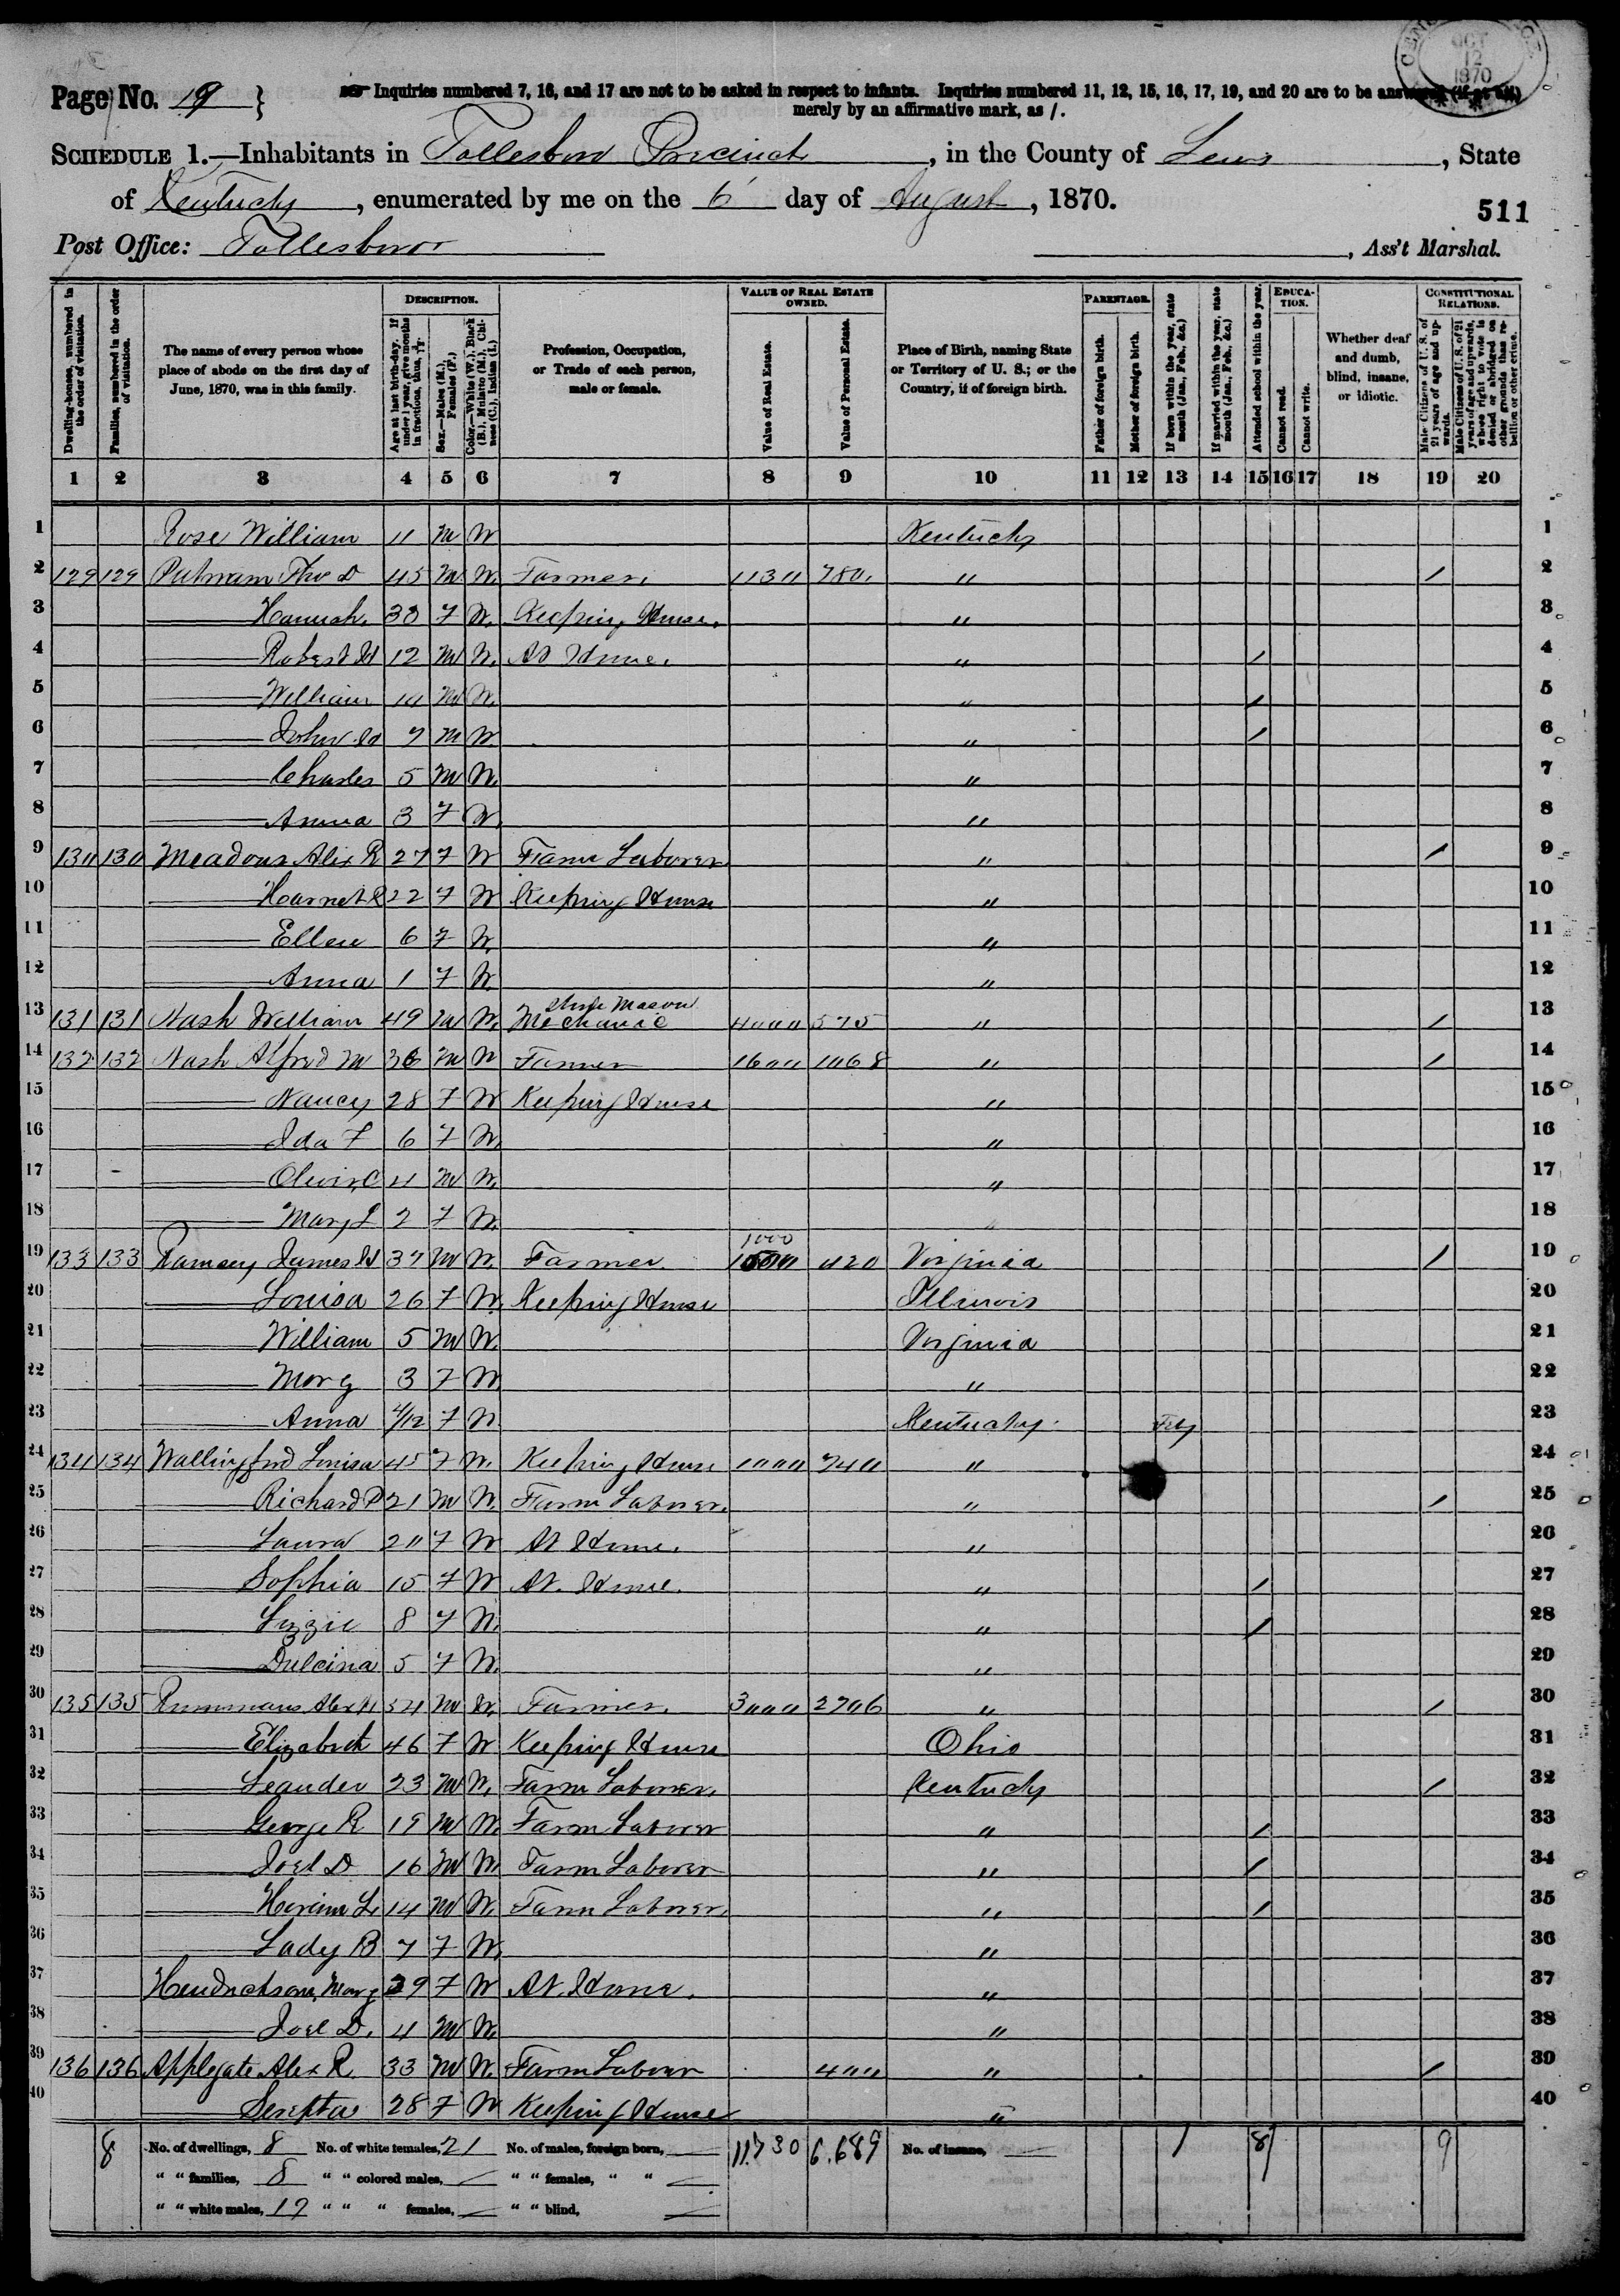 CENSUS OFFICE OCT 12 1870
Page No. 19 } Inquiries numbered 7, 16, and 17 are not to be asked in respect to infants. Inquiries numbered 11, 12, 15, 16, 17, 19, and 20 are to be answered (if at all)
merely by an affirmative mark, as /.
SCHEDULE 1.—Inhabitants in Tollesboro Precinct, in the County of Lewis, State
of Kentucky, enumerated by me on the 6 day of August, 1870.
511
Post Office: Tollesboro , Ass't Marshal.
Dwelling-houses, numbered in the order of visitation.
Families, numbered in the order of visitation.
The name of every person whose place of abode on the first day of June, 1870, was in this family.
DESCRIPTION.
Age at last birth-day. If under 1 year, give months in fractions, thus, 3/12
Sex.—Males (M.), Females (F.)
Color.—White (W.), Black (B.), Mulatto (M.), Chinese (C.), Indian (I.)
Profession, Occupation, or Trade of each person, male or female.
VALUE OF REAL ESTATE OWNED.
Value of Real Estate.
Value of Personal Estate.
Place of Birth, naming State or Territory of U. S.; or the Country, if of foreign birth.
PARENTAGE.
Father of foreign birth.
Mother of foreign birth.
If born within the year, state month (Jan., Feb., &c.)
If married within the year, state month (Jan., Feb., &c.)
Attended school within the year.
EDUCATION.
Cannot read.
Cannot write.
Whether deaf and dumb, blind, insane, or idiotic.
CONSTITUTIONAL RELATIONS.
Male Citizens of U. S. of 21 years of age and upwards.
Male Citizens of U. S. of 21 years of age and upwards, whose right to vote is denied or abridged on other grounds than rebellion or other crime.
1 2 3 4 5 6 7 8 9 10 11 12 13 14 15 16 17 18 19 20
1 Rose William 11 M W Kentucky 1
2 129 129 Putnam D 45 M W Farmer 1130 780 " / 2
3 Hannah 38 F W Keeping House " 3
4 Robert H 12 M W At Home " / 4
5 William 10 M W " / 5
6 John 7 M W " / 6
7 Charles 5 M W " 7
8 Anna 3 F W " 8
9 130 130 Meadows Alex R 27 F W Farm Laborer " / 9
10 Harriet R 22 F W Keeping House " 10
11 Ellen 6 F W " 11
12 Anna 1 F W " 12
13 131 131 Nash William 49 M W Stone Mason Mechanic 4000 575 " / 13
14 132 132 Nash Alfred M 36 M W Farmer 1600 1068 " / 14
15 Nancy 28 F W Keeping House " 15
16 Ida F 6 F W " 16
17 Oliver C 4 M W " 17
18 Mary L 2 F W " 18
19 133 133 Ramsey James H 37 M W Farmer 1000 420 Virginia / 19
20 Louisa 26 F W Keeping House Illinois 20
21 William 5 M W Virginia 21
22 Mary 3 F W " 22
23 Anna 4/12 F W Kentucky Feby 23
24 134 134 Wallingford Louisa 45 F W Keeping House 1000 740 " 24
25 Richard P 21 M W Farm Laborer " / 25
26 Laura 20 F W At Home " 26
27 Sophia 15 F W At Home " / 27
28 Lizzie 8 F W " / 28
29 Dulcina 5 F W " 29
30 135 135 Rummans Alex H 54 M W Farmer 3000 2706 " / 30
31 Elizabeth 46 F W Keeping House Ohio 31
32 Leander 23 M W Farm Laborer Kentucky / 32
33 George R 19 M W Farm Laborer " / 33
34 Joel D 16 M W Farm Laborer " / 34
35 Hiram L 14 M W Farm Laborer " / 35
36 Lady B 7 F W " 36
37 Hendrickson Mary 29 F W At Home " 37
38 Joel D. 4 M W " 38
39 136 136 Applegate Alex R 33 M W Farm Laborer 400 " / 39
40 Serepta 28 F W Keeping House " 40
8 No. of dwellings, 8 No. of white females, 21 No. of males, foreign born, — 11,730 6,689 No. of insane, — 1 8 9
" " families, 8 " " colored males, — " " females, " " —
" " white males, 19 " " " females, — " " blind, —